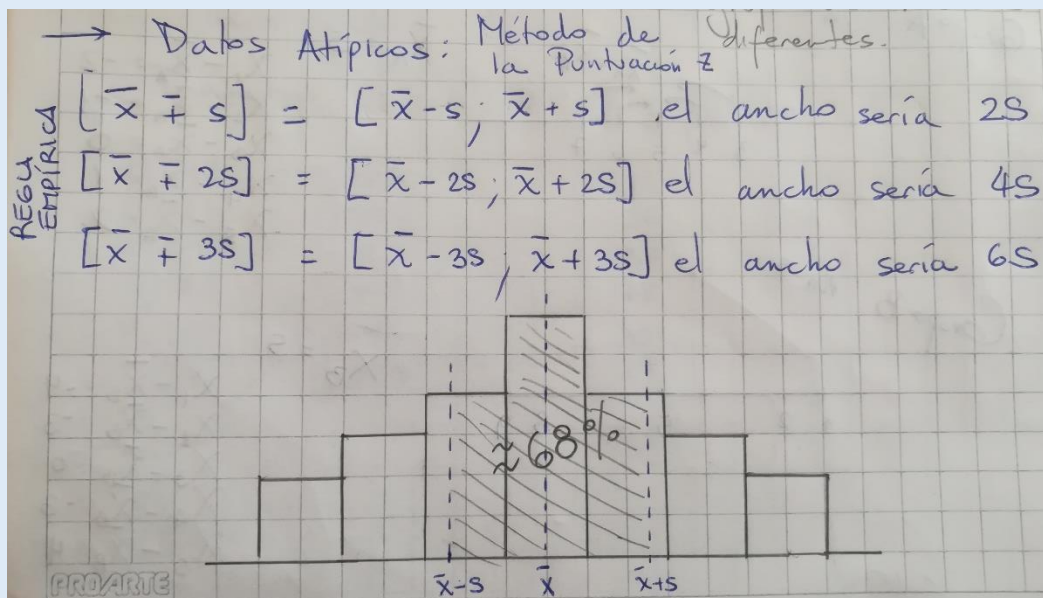 → Datos Atípicos: Método de la Puntuación Z
diferentes.
REGLA EMPÍRICA
[x̄ ∓ s] = [x̄ - s ; x̄ + s] el ancho sería 2S
[x̄ ∓ 2s] = [x̄ - 2s ; x̄ + 2s] el ancho sería 4S
[x̄ ∓ 3s] = [x̄ - 3s ; x̄ + 3s] el ancho sería 6S
≈ 68%
x̄-s x̄ x̄+s
PROARTE